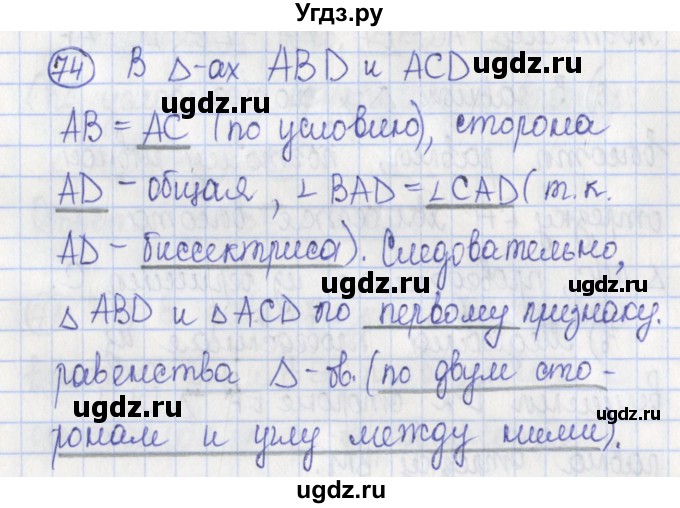 Угдз.ру
74 В Δ-ах ABD и ACD ugdz.ru
AB = AC (по условию), сторона
ugdz.ru ugdz.ru
AD – общая, ∠ BAD = ∠ CAD (т.к.
AD – биссектриса). Следовательно,
ugdz.ru ugdz.ru
Δ ABD и Δ ACD по первому признаку.
равенства Δ-ов. (по двум сто-
ugdz.ru ugdz.ru
ронам и углу между ними).
ugdz.ru